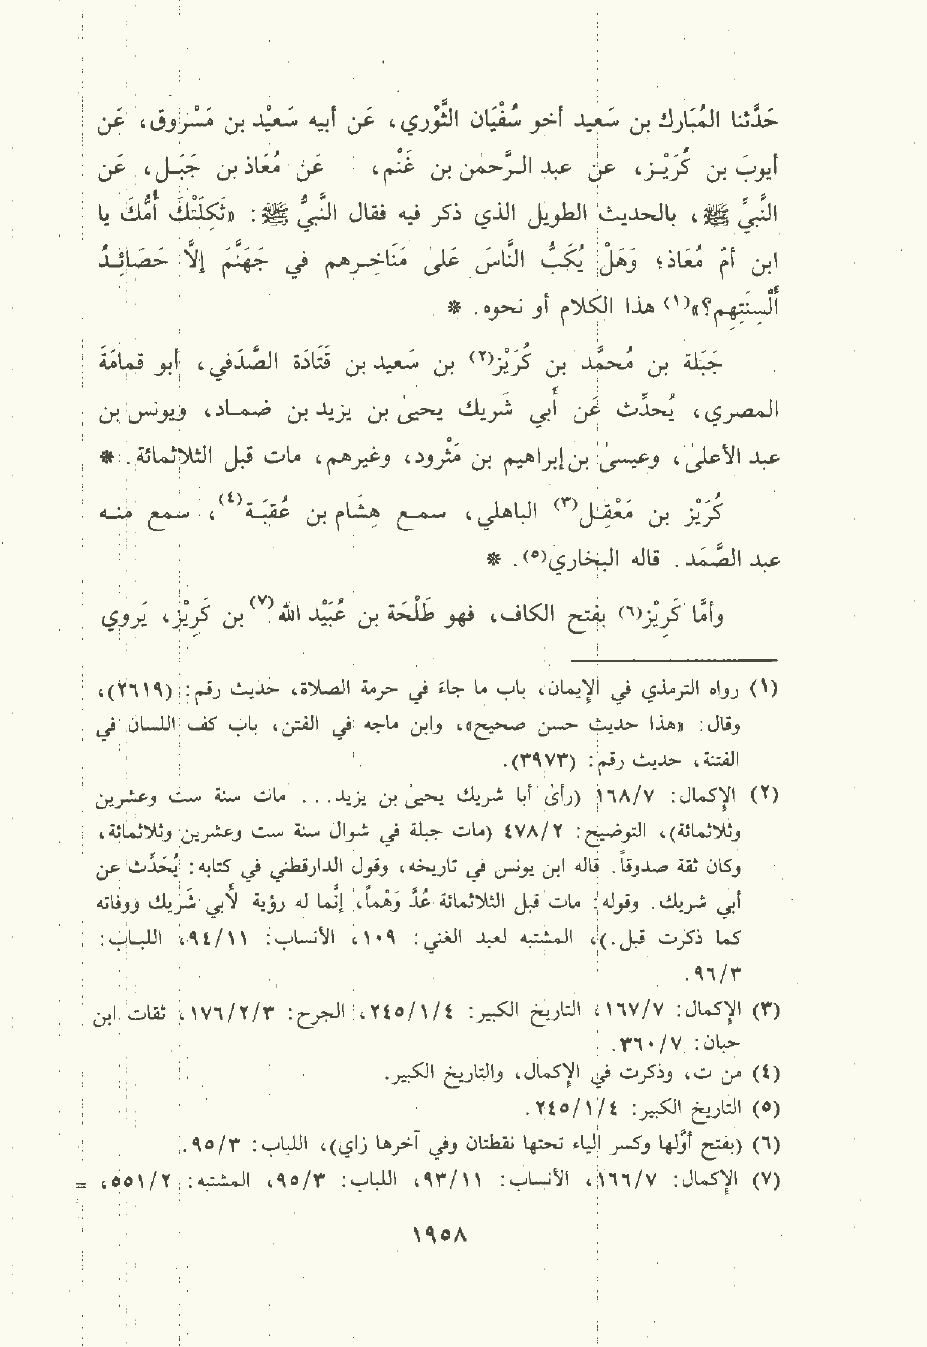 حَدَّثنا المُبَارك بن سَعيد أخو سُفْيَان الثَّوْري، عَن أبيه سَعيْد بن مَسْروق، عَن
أيوبَ بن كُرَيْـز، عن عبد الرَّحمٰن بن غَنْم، عَن مُعَاذ بن جَبَـل، عَن
النَّبيِّ ﷺ، بالحديث الطويل الذي ذكر فيه فقال النَّبيُّ ﷺ: «ثَكِلَتْكَ أُمُّكَ يا
ابن أمّ مُعَاذ؛ وَهَلْ يُكَبُّ النَّاسَ عَلَى مَنَاخـرهم في جَهَنَّمَ إلَّا حَصَائـدُ
ألْسِنَتِهِم؟»(١) هذا الكلام أو نحوه. *
جَبَلة بن مُحمَّد بن كُرَيْز(٢) بن سَعيد بن قَتَادَة الصَّدَفي، أبو قمامَة
المصري، يُحدِّث عَن أبي شَريك يحيىٰ بن يزيد بن ضـماد، ويونس بن
عبد الأعلىٰ، وعيسىٰ بن إبراهيم بن مَثْرود، وغيرهم، مات قبل الثلاثمائة. *
كُرَيْز بن مَعْقِـل(٣) الباهلي، سـمع هِشَام بن عُقبَـة(٤)، سـمع منـه
عبد الصَّمَد. قاله البخاري(٥). *
وأمَّا كَرِيْز(٦) بفتح الكاف، فهو طَلْحَة بن عُبَيْد الله(٧) بن كَرِيْز، يَروي
(١) رواه الترمذي في الإيمان، باب ما جاء في حرمة الصلاة، حديث رقم: (٢٦١٩)،
وقال: «هذا حديث حسن صحيح»، وابن ماجه في الفتن، باب كف اللسان في
الفتنة، حديث رقم: (٣٩٧٣).
(٢) الإكمال: ١٦٨/٧ (رأىٰ أبا شريك يحيىٰ بن يزيد... مات سنة ست وعشرين
وثلاثمائة)، التوضيح: ٤٧٨/٢ (مات جبلة في شوال سنة ست وعشرين وثلاثمائة،
وكان ثقة صدوقاً. قاله ابن يونس في تاريخه، وقول الدارقطني في كتابه: يُحَدِّث عن
أبي شريك. وقوله: مات قبل الثلاثمائة عُدَّ وَهْماً، إنَّما له رؤية لأبي شَريك ووفاته
كما ذكرت قبل.)، المشتبه لعبد الغني: ١٠٩، الأنساب: ٩٤/١١، اللباب:
٩٦/٣.
(٣) الإكمال: ١٦٧/٧، التاريخ الكبير: ٢٤٥/١/٤، الجرح: ١٧٦/٢/٣، ثقات ابن
حبان: ٣٦٠/٧.
(٤) من ت، وذكرت في الإكمال، والتاريخ الكبير.
(٥) التاريخ الكبير: ٢٤٥/١/٤.
(٦) (بفتح أوَّلها وكسر الياء تحتها نقطتان وفي آخرها زاي)، اللباب: ٩٥/٣.
(٧) الإكمال: ١٦٦/٧، الأنساب: ٩٣/١١، اللباب: ٩٥/٣، المشتبه: ٥٥١/٢، =
١٩٥٨